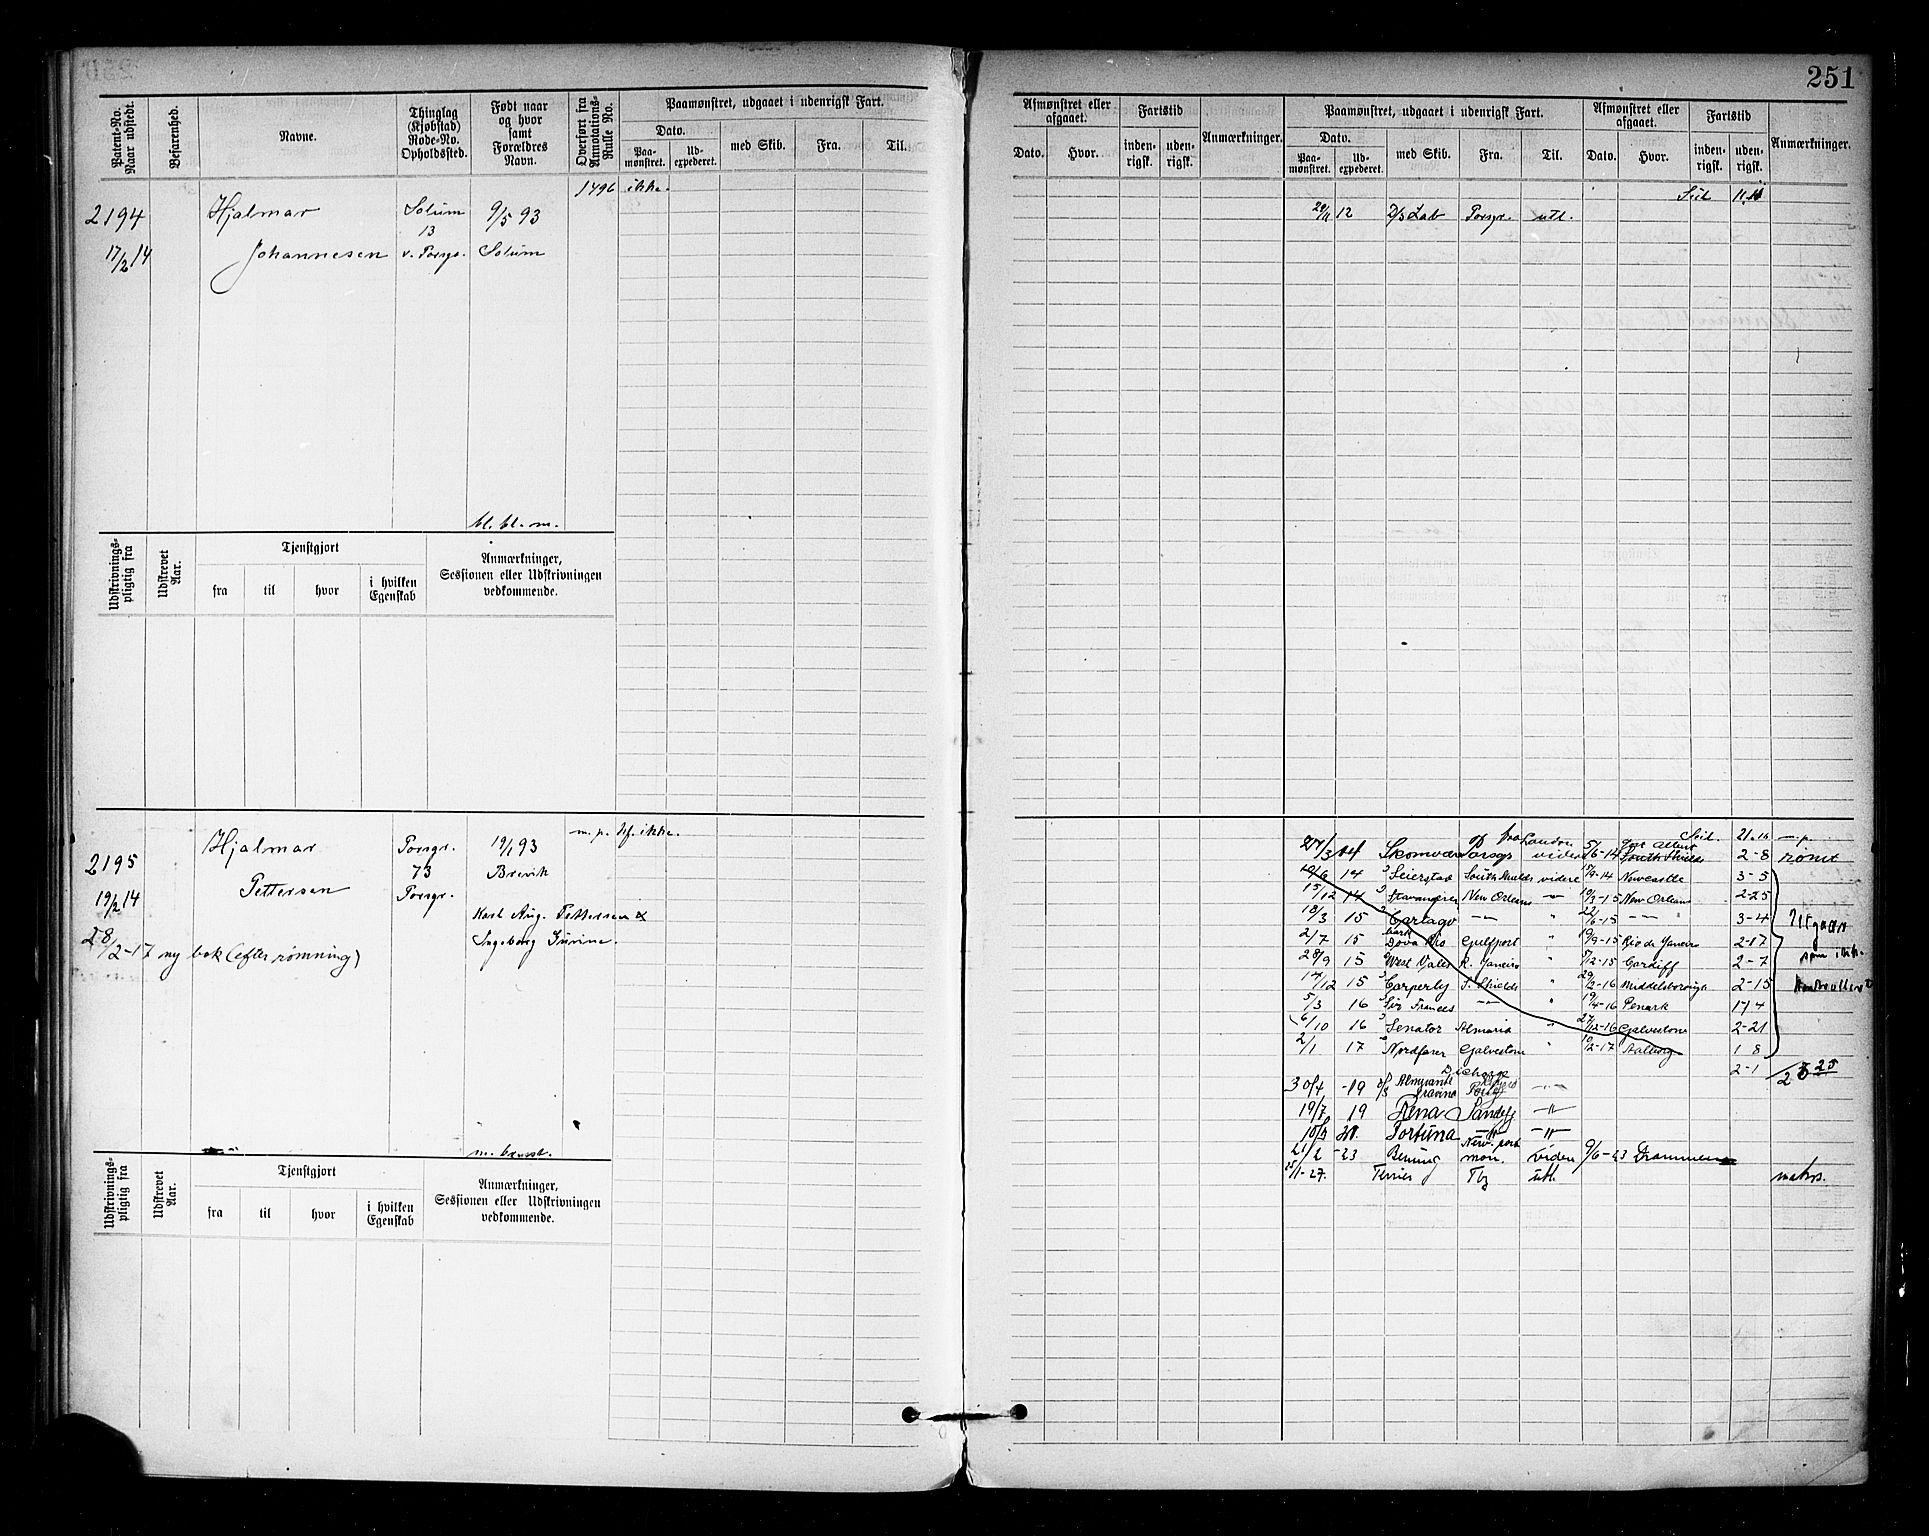 251
Patent-No. Naar udstedt.
Befarenhed.
Navne.
Thinglag (Kjøbstad) Rode-No. Opholdssted.
Født naar og hvor samt Forældres Navn.
Overført fra Annotations-Rulle No.
Paamønstret, udgaaet i udenrigsk Fart.
Dato.
Paa-mønstret. Ud-expederet. med Skib. Fra. Til.
Afmønstret eller afgaaet. Fartstid
Dato. Hvor. inden-rigsk. uden-rigsk. Anmærkninger.
Paamønstret, udgaaet i udenrigsk Fart. Afmønstret eller afgaaet. Fartstid
Dato.
Paa-mønstret. Ud-expederet. med Skib. Fra. Til. Dato. Hvor. inden-rigsk. uden-rigsk. Anmærkninger.
1496 ikke.
2194 Hjalmar Solum 9/5 93
13
17/2 14 Johannesen v. Porsgr. Solum
bl. bl. m.
12 D/s Porsgr. utl.
Udskrivnings-pligtig fra
Udskrevet Aar.
Tjenstgjort
fra til hvor i hvilken Egenskab
Anmærkninger, Sessionen eller Udskrivningen vedkommende.
m. p. bf. ikke.
2195 Hjalmar Porsgr. 19/1 93
73 Brevik
19/2 14 Pettersen Porsgr.
Karl Aug. Pettersen &
Ingeborg
28/2-17 ny bok (efter rømning)
fra London
Skomvær Porsgr videre 5/6-14 South Shields 2-8 rømt
14 Seierstad South Shields videre 14 Newcastle 3-5
15/12 14 Stavangeren New Orleans -"- 10/3-15 New Orleans 2-25
18/3 15 Cartago -"- " 22/6-15 -"- " 3-4 Utgaar
bark
2/7 15 Dova Rio Gulfport " 19/9-15 Rio de Janeiro 2-17
28/9 15 R. Janeiro " 12-15 Cardiff 2-7 som ikke
17/12 15 Carperby S. Shields " 29/2-16 Middelsborough 2-15 kontrollert
5/3 16 Sir Frances -"- " 19/4-16 Penark 1 14
6/10 16 Senator Almeria " 27/12-16 Galvestone 2-21
2/1 17 Nordfarer Galvestone " 10/2-17 Aalborg 1 8
2-1
30/4 -19 Almirante -"-
19/7 19 Rena Sandefj -"-
Fortuna -"- -"-
21/2 -23 Benung Newport mon. videre 9/6-23 Drammen
25/1-27. Terrier Tbg utl. matros.
Udskrivnings-pligtig fra
Udskrevet Aar.
Tjenstgjort
fra til hvor i hvilken Egenskab
Anmærkninger, Sessionen eller Udskrivningen vedkommende.